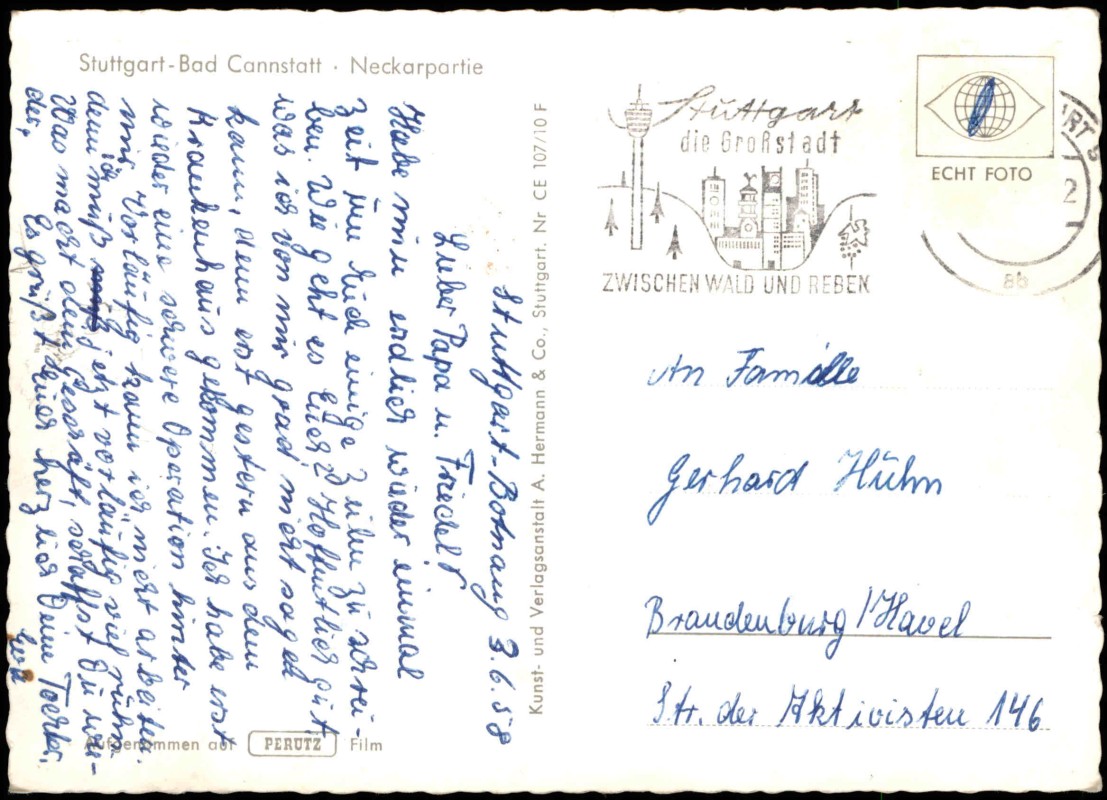 Stuttgart-Bad Cannstatt · Neckarpartie
Stuttgart-Botnang 3.6.58
Lieber Papa u. Friedel!
Habe nun endlich wieder einmal
Zeit um Euch einige Zeilen zu schrei-
ben. Wie geht es Euch? Hoffentlich gut
was ich von mir grad nicht sagen
kann, denn erst gestern aus dem
Krankenhaus gekommen. Ich habe erst
wieder eine schwere Operation hinter
mir. Vorläufig kann ich nicht arbeiten.
denn muß ich jetzt vorläufig viel
Was macht dein Geschäft, schaffst Du wie-
der,
Es grüßt Euch herzlich Deine Tochter,
Aufgenommen auf PERUTZ Film
Kunst- und Verlagsanstalt A. Hermann & Co., Stuttgart. Nr CE 107/10 F
Stuttgart
die Großstadt
ZWISCHEN WALD UND REBEN
ECHT FOTO
2
ab
An Familie
Gerhard Hühn
Brandenburg/Havel
Str. der Aktivisten 146